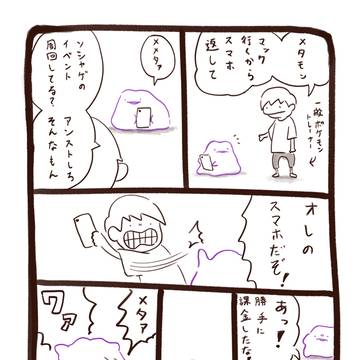 メタモン
マック
行くから
スマホ
返して
一般ポケモン
トレーナー
メメタァ
ソシャゲの
イベント
周回してる?
アンストしろ
そんなもん
オレの
スマホだぞ!
あっ!
勝手に
課金したな
メタァ
ワァ